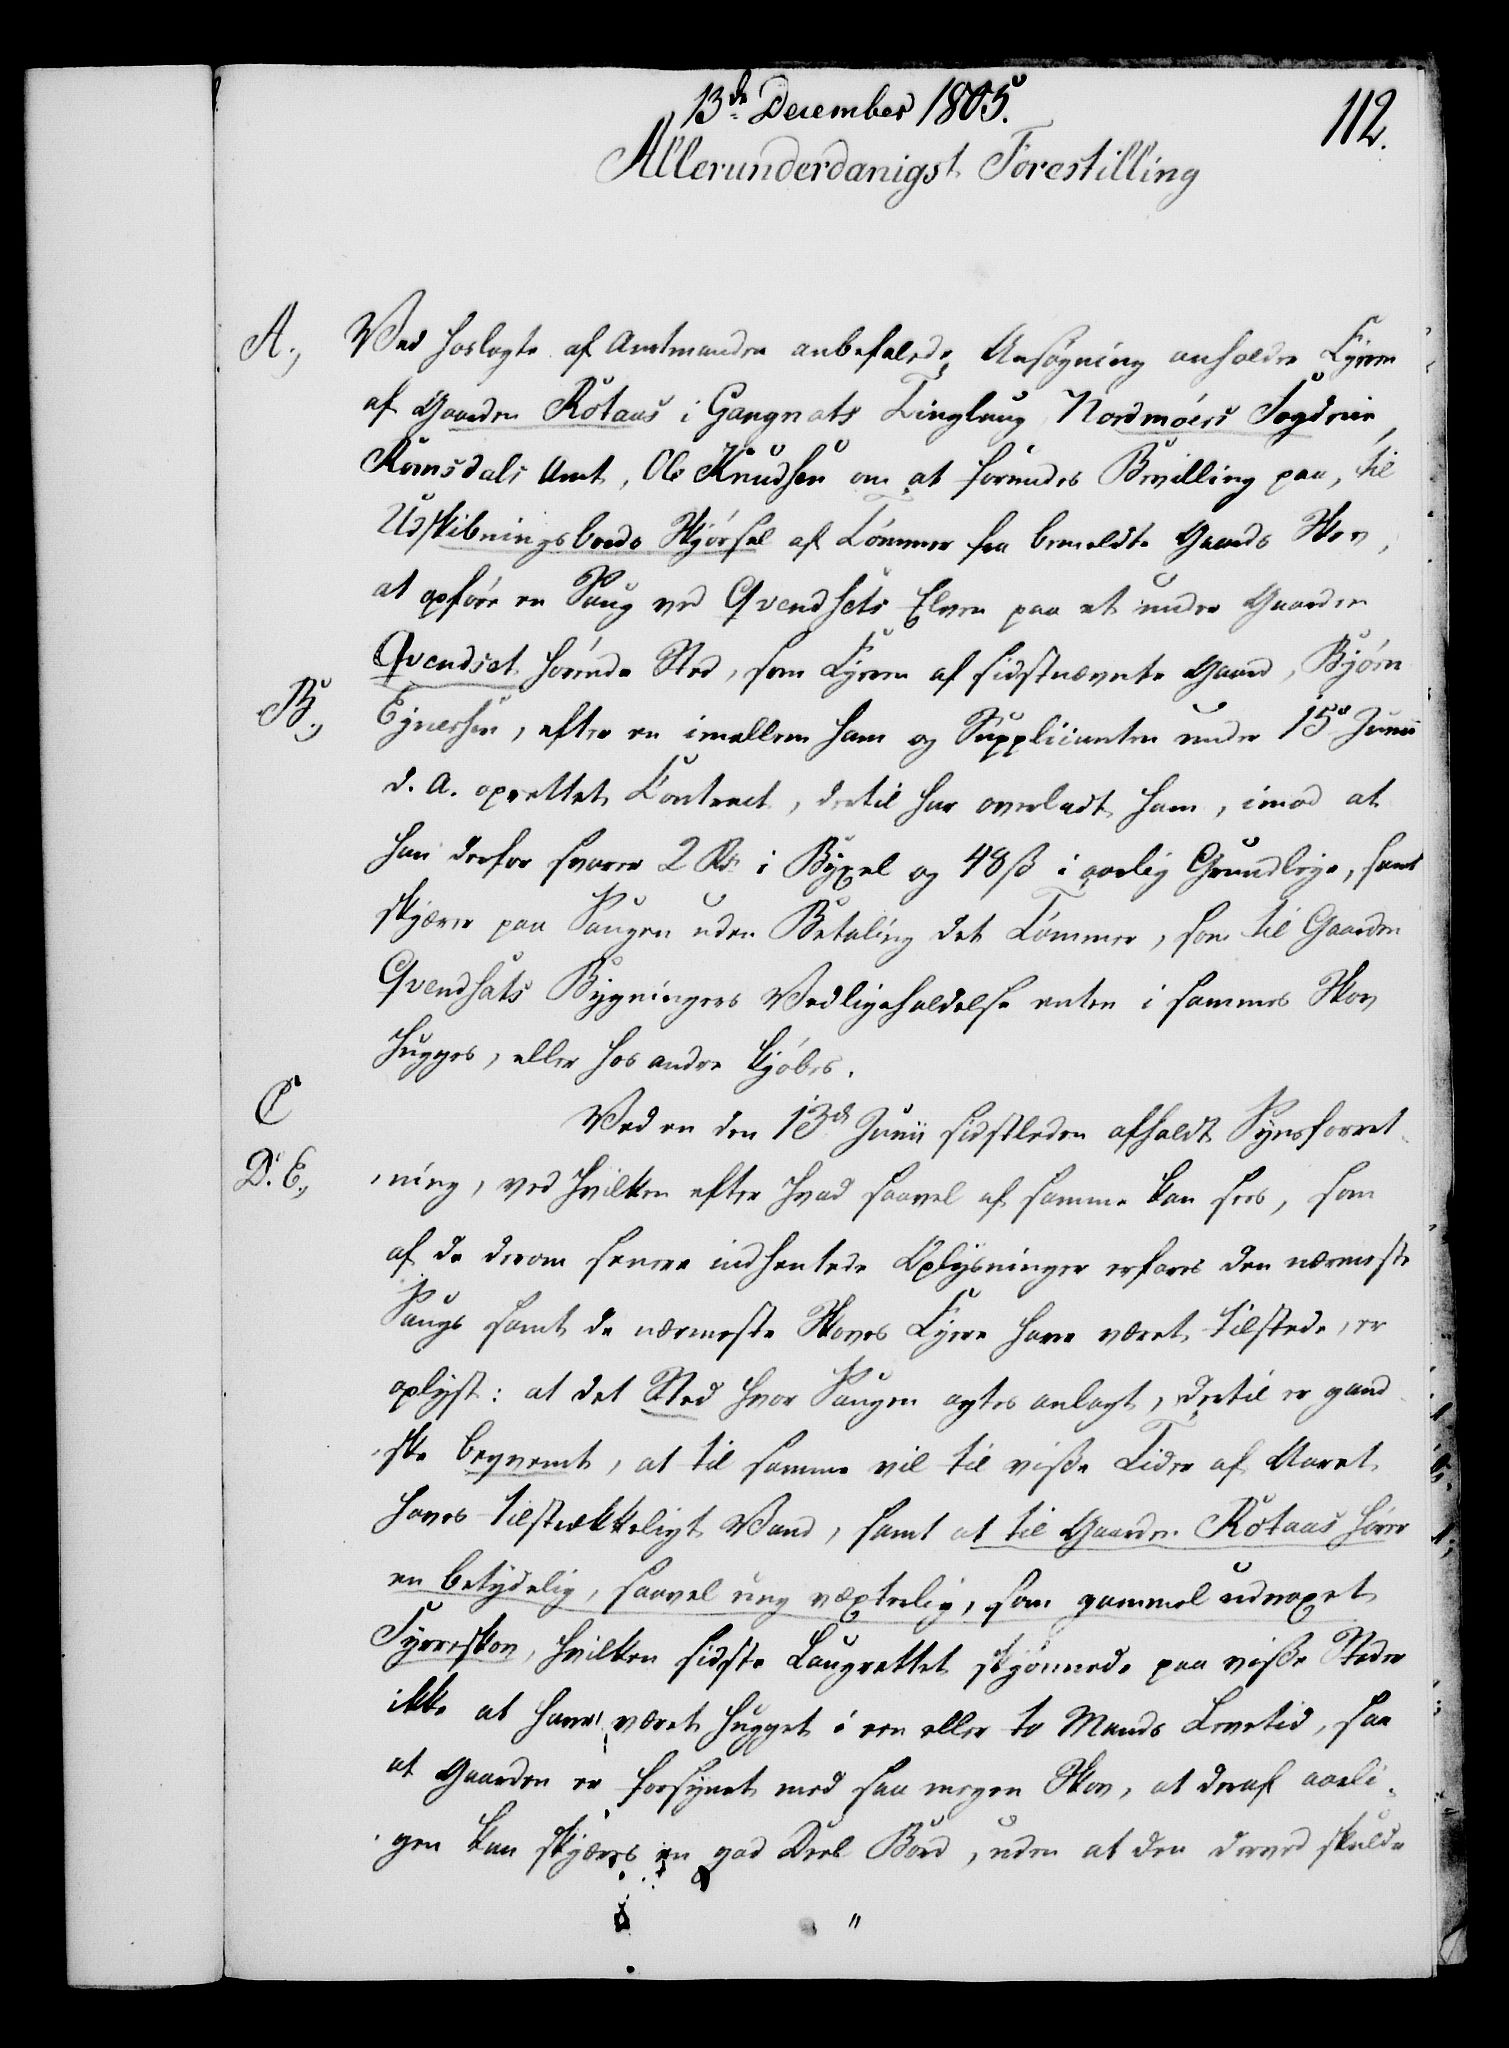 13de December 1805.
112.
Allerunderdanigst Forestilling
A., Ved hoslagte af Amtmanden anbefalede Ansøgning anholder Ejeren
af Gaarden Rotaas i Gangnats Tinglaug Nordmöers Fogderie,
Romsdals Amt, Ole Knudsen om at forundes Bevilling paa, til
Udskibningsbords Skjörsel af Tömmer fra bemeldte Gaards Skov,
at opföre en Saug ved Qvendsets Elven paa et under Gaarden
Qvendset hörende Sted, som Ejeren af sidstnævnte Gaard, Björn
B., Ejnersen, efter en imellem ham og Supplicanten under 15de Junii
d. A. oprettet Contract, dertil har overladt ham, imod at
han derfor svarer 2 Rd. i Byxel og 48 ß i aarlig Grundleje, samt
skjærer paa Saugen uden Betaling det Tömmer, som til Gaarden
Qvendsæts Bygningers Vedligeholdelse enten i sammes Skov
hugges, eller hos andre kjöbes.
C Ved en den 13de Junii sidstleden afholdt Synsforret-
D. E., ning, ved hvilken efter hvad saavel af samme kan sees, som
af de derom senere indhentede Oplysninger erfares den nærmeste
Saugs samt de nærmeste Skoves Ejere have været tilstede, er
oplyst: at det Sted hvor Saugen agtes anlagt, dertil er gand-
ske beqvemt, at til samme vil til visse Tider af Aaret
haves tilstrækkeligt Vand, samt at til Gaarden Rotaas hörer
en betydelig, saavel ung væxterlig, som gammel udvoxet
Fyrreskov, hvilken sidste Laugrettet skjönnede paa visse Steder
ikke at have været hugget i een eller to Mands Levetid, saa
at Gaarden er forsynet med saa megen Skov, at deraf aarli-
gen kan skjæres en god Deel Bord, uden at den derved skulde
"